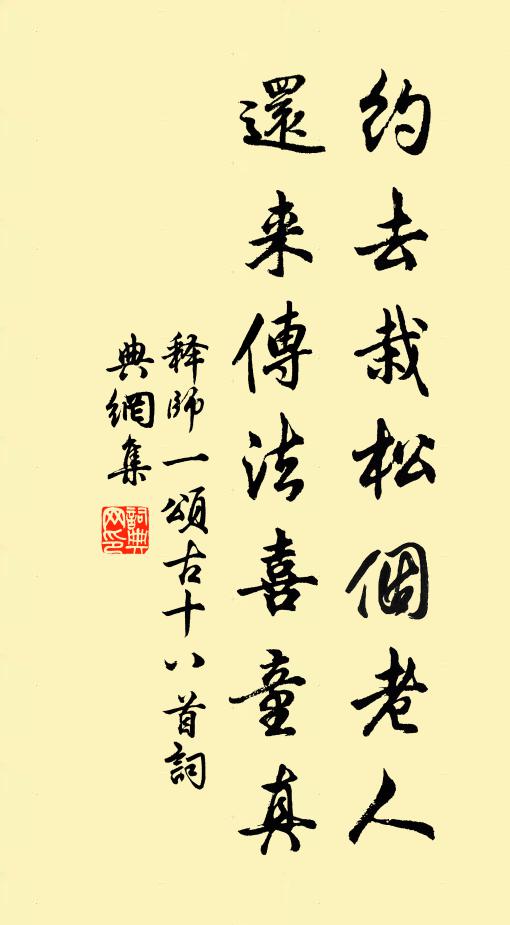 約去栽松個老人
還来傳法喜童真
释師一頌古十八首詞
典網集
詞典
网印